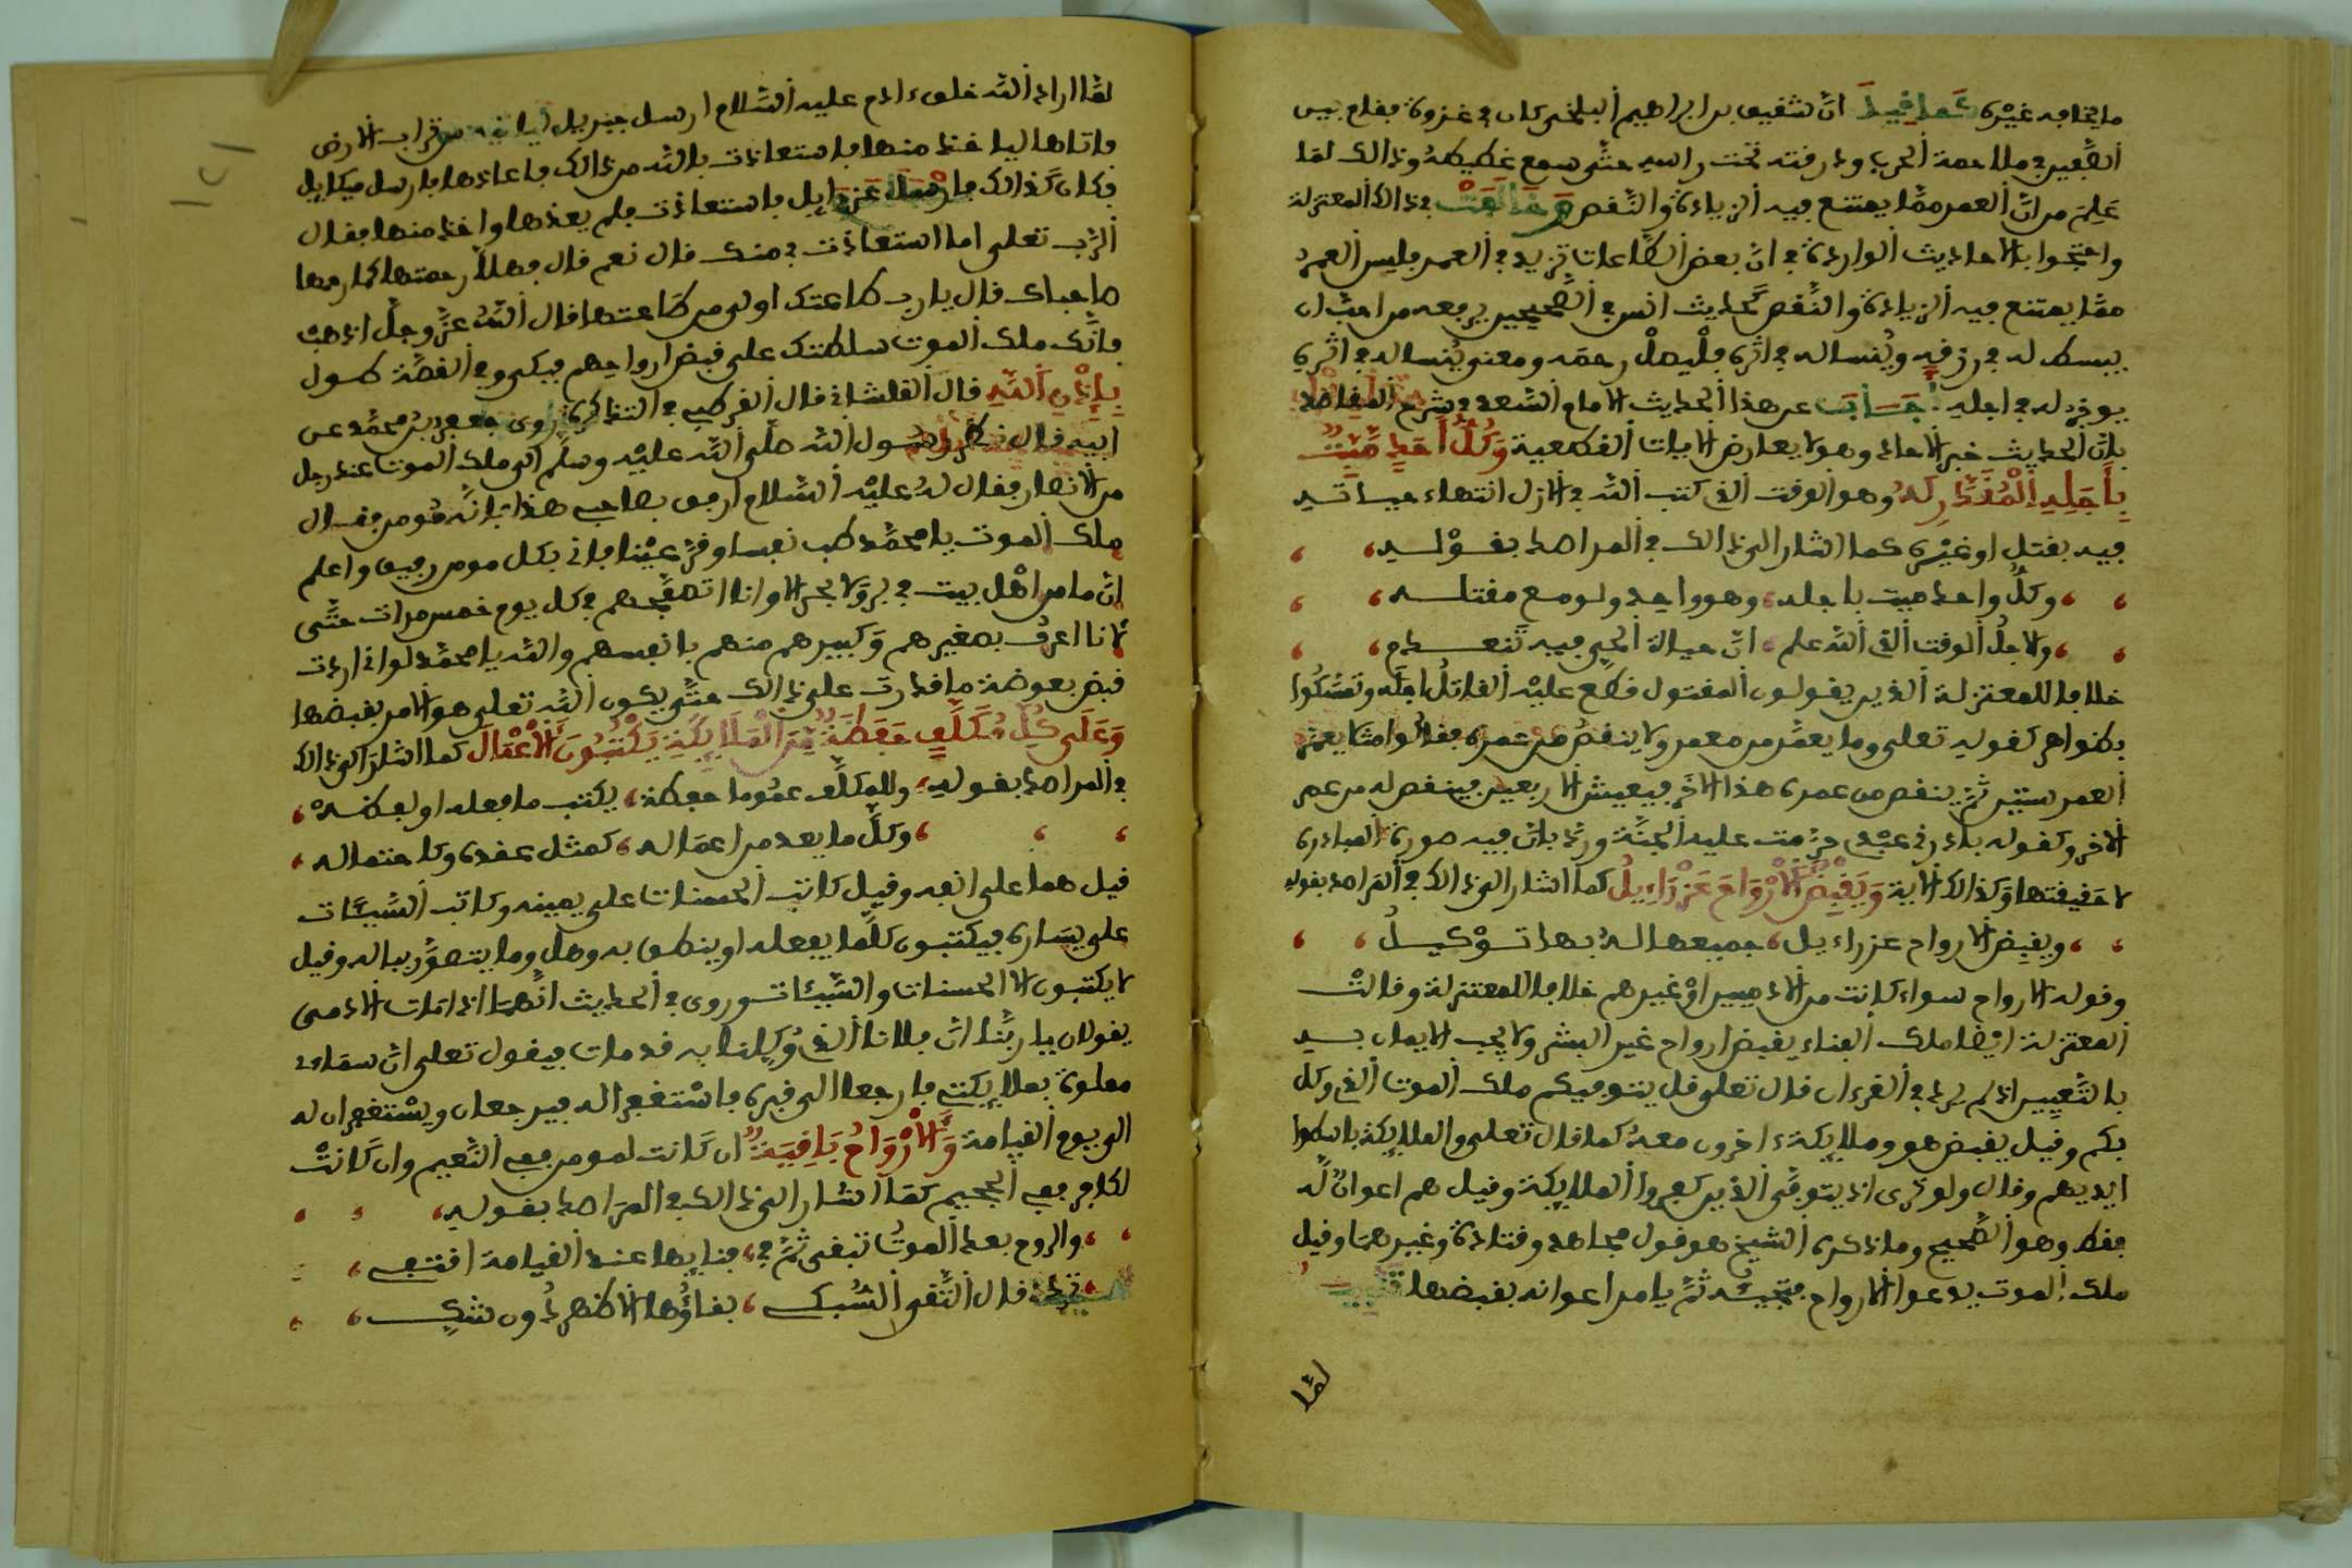 ما يخافه غيره كما فيل انّ شفيق بن ابراهيم البلخي كان في غزوة فقام بين
الصّفين في ملاحمة الحرب ودرفته تحت راسه حتّى سمع غطيطه وذالك لمّا
علم من انّ العمر ممّا يمتنع فيه الزيادة والنّفص وخالفت في ذالك المعتزلة
واحتجوا بالاحاديث الواردة في انّ بعض الطّاعات تزيد في العمر فليس العمر
ممّا يمتنع فيه الزيادة والنّفص كحديث انس في الصّحيحين يرفعه من احبّ ان
يبسط له في رزفه وينسا له في اثره فليصل رحمه ومعنى ينسا له في اثره
يوخر له في اجله اجاب عن هذا الحديث الامام السّعد في شرح المفاصد
بانّ الحديث خبر الاحاد وهو لا يعارض الايات الفطعية وكلّ احد ميّت
باجله المفدّر له وهو الوفت الذي كتب اللّه في الازل انتهاء حياته
فيه بفتل او غيره كما اشار الى ذالك في المراصد بفوله
وكلّ واحد ميت باجله وهو واحد ولو مع مفتله
والاجل الوفت الذي اللّه علم انّ حياة الحي فيه تنعدم
خلافا للمعتزلة الذين يفولون المفتول فطع عليه الفاتل اجله وتمسّكوا
بظواهر كفوله تعلى وما يعمّر من معمر ولا ينفص من عمره ففالوا مثلا يعمّر
العمر ستين ثمّ ينفص من عمره هذا الاخر فيعيش الاربعين فينفص له من عمر
الاخر وكفوله بادرني عبدي حرّمت عليه الجنّة وردّ بانّ فيه صورة المبادرة
لا حفيفتها وكذالك الاية ويفبض الارواح عزراءيل كما اشار الى ذالك في المراصد بفوله
ويفبض الارواح عزراءيل جميعها له بها توكيل
وفوله الارواح سواء كانت من الادميين او غيرهم خلافا للمعتزلة وفالت
المعتزلة ايضا ملك الفناء يفبض ارواح غير البشر ولا يجب الايمان به
بالتّعيين اذ لم يرد في الفرءان فال تعلى فل يتوفيكم ملك الموت الذي وكل
بكم وفيل يفبض هو وملايكة ءاخرون معه كما فال تعلى والملايكة باسطوا
ايديهم وفال ولو ترى اذ يتوفّى الذين كفروا الملايكة وفيل هم اعوان له
ففط وهو الصّحيح وما ذكره الشيخ هو فول مجاهد وفتادة وغيرهما وفيل
ملك الموت يدعوا الارواح فتجيئه ثمّ يامر اعوانه بفبضها تنبيه
لمّا
لمّا اراد اللّه خلق ءادم عليه السّلام ارسل جبريل لياتيه من تراب الارض
فاتاها لياخذ منها فاستعاذت باللّه من ذالك فاعاذها فارسل ميكايل
فكان كذالك فارسل عزرايل فاستعاذت فلم يعذها واخذ منها ففال
الرّب تعلى اما استعاذت بي منك فال نعم فال فهلّا رحمتها كما رحمها
صاحباك فال يا رب طاعتك اولى من طاعتها فال اللّه عزّ وجلّ اذهب
فانّك ملك الموت سلطتك على فبض ارواحهم فبكى وفي الفصّة طول
باذن اللّه فال الفلشاني فال الفرطبي في التذكرة روى جعفر بن محمّد عن
ابيه فال نظر رسول اللّه صلّى اللّه عليه وسلّم الى ملك الموت عند رجل
من الانصار ففال له عليه السّلام ارفق بصاحبي هذا فانّه مومن ففال
ملك الموت يا محمّد طب نفسا وفرّ عينا فاني بكل مومن رفيق واعلم
انّ ما من اهل بيت في برّ ولا بحر الا وانا اتصفّحهم في كل يوم خمس مرات حتّى
لانا اعرف بصغيرهم وكبيرهم منهم بانفسهم واللّه يا محمّد لو اني اردت
فبض بعوضة ما فدرت على ذالك حتّى يكون اللّه تعلى هو الامر بفبضها
وعلى كلّ مكلّف حفظة من الملايكة يكتبون الاعمال كما اشار الى ذالك
في المراصد بفوله وللمكلّف عموما حفظه يكتب ما فعله او لفظه
وكلّ ما يعد من اعماله كمثل عفده وكاحتماله
فيل هما على انفه وفيل كاتب الحسنات على يمينه وكاتب السّيّئات
على يساره فيكتبون كلّما يفعله او ينطق به وهل وما يتصوّر بباله وفيل
لا يكتبون الا الحسنات والسّيّئات وروي في الحديث انّهما اذا مات الادمى
يفولان يا ربّنا انّ فلانا الذي وكلنا به فد مات فيفول تعلى انّ سماءي
مملوة بملايكتي فارجعا الى فبره فاستغفرا له فيرجعان ويستغفران له
الى يوم الفيامة والارواح بافية ان كانت لمومن ففي النّعيم وان كانت
لكافر ففي الجحيم كما اشار الى ذالك في المراصد بفوله
والروح بعد الموت تبفى ثمّ في فنايها عند الفيامة افتفي
تردّد فال التّفي السّبكي بفاؤها الاظهر دون شكّ